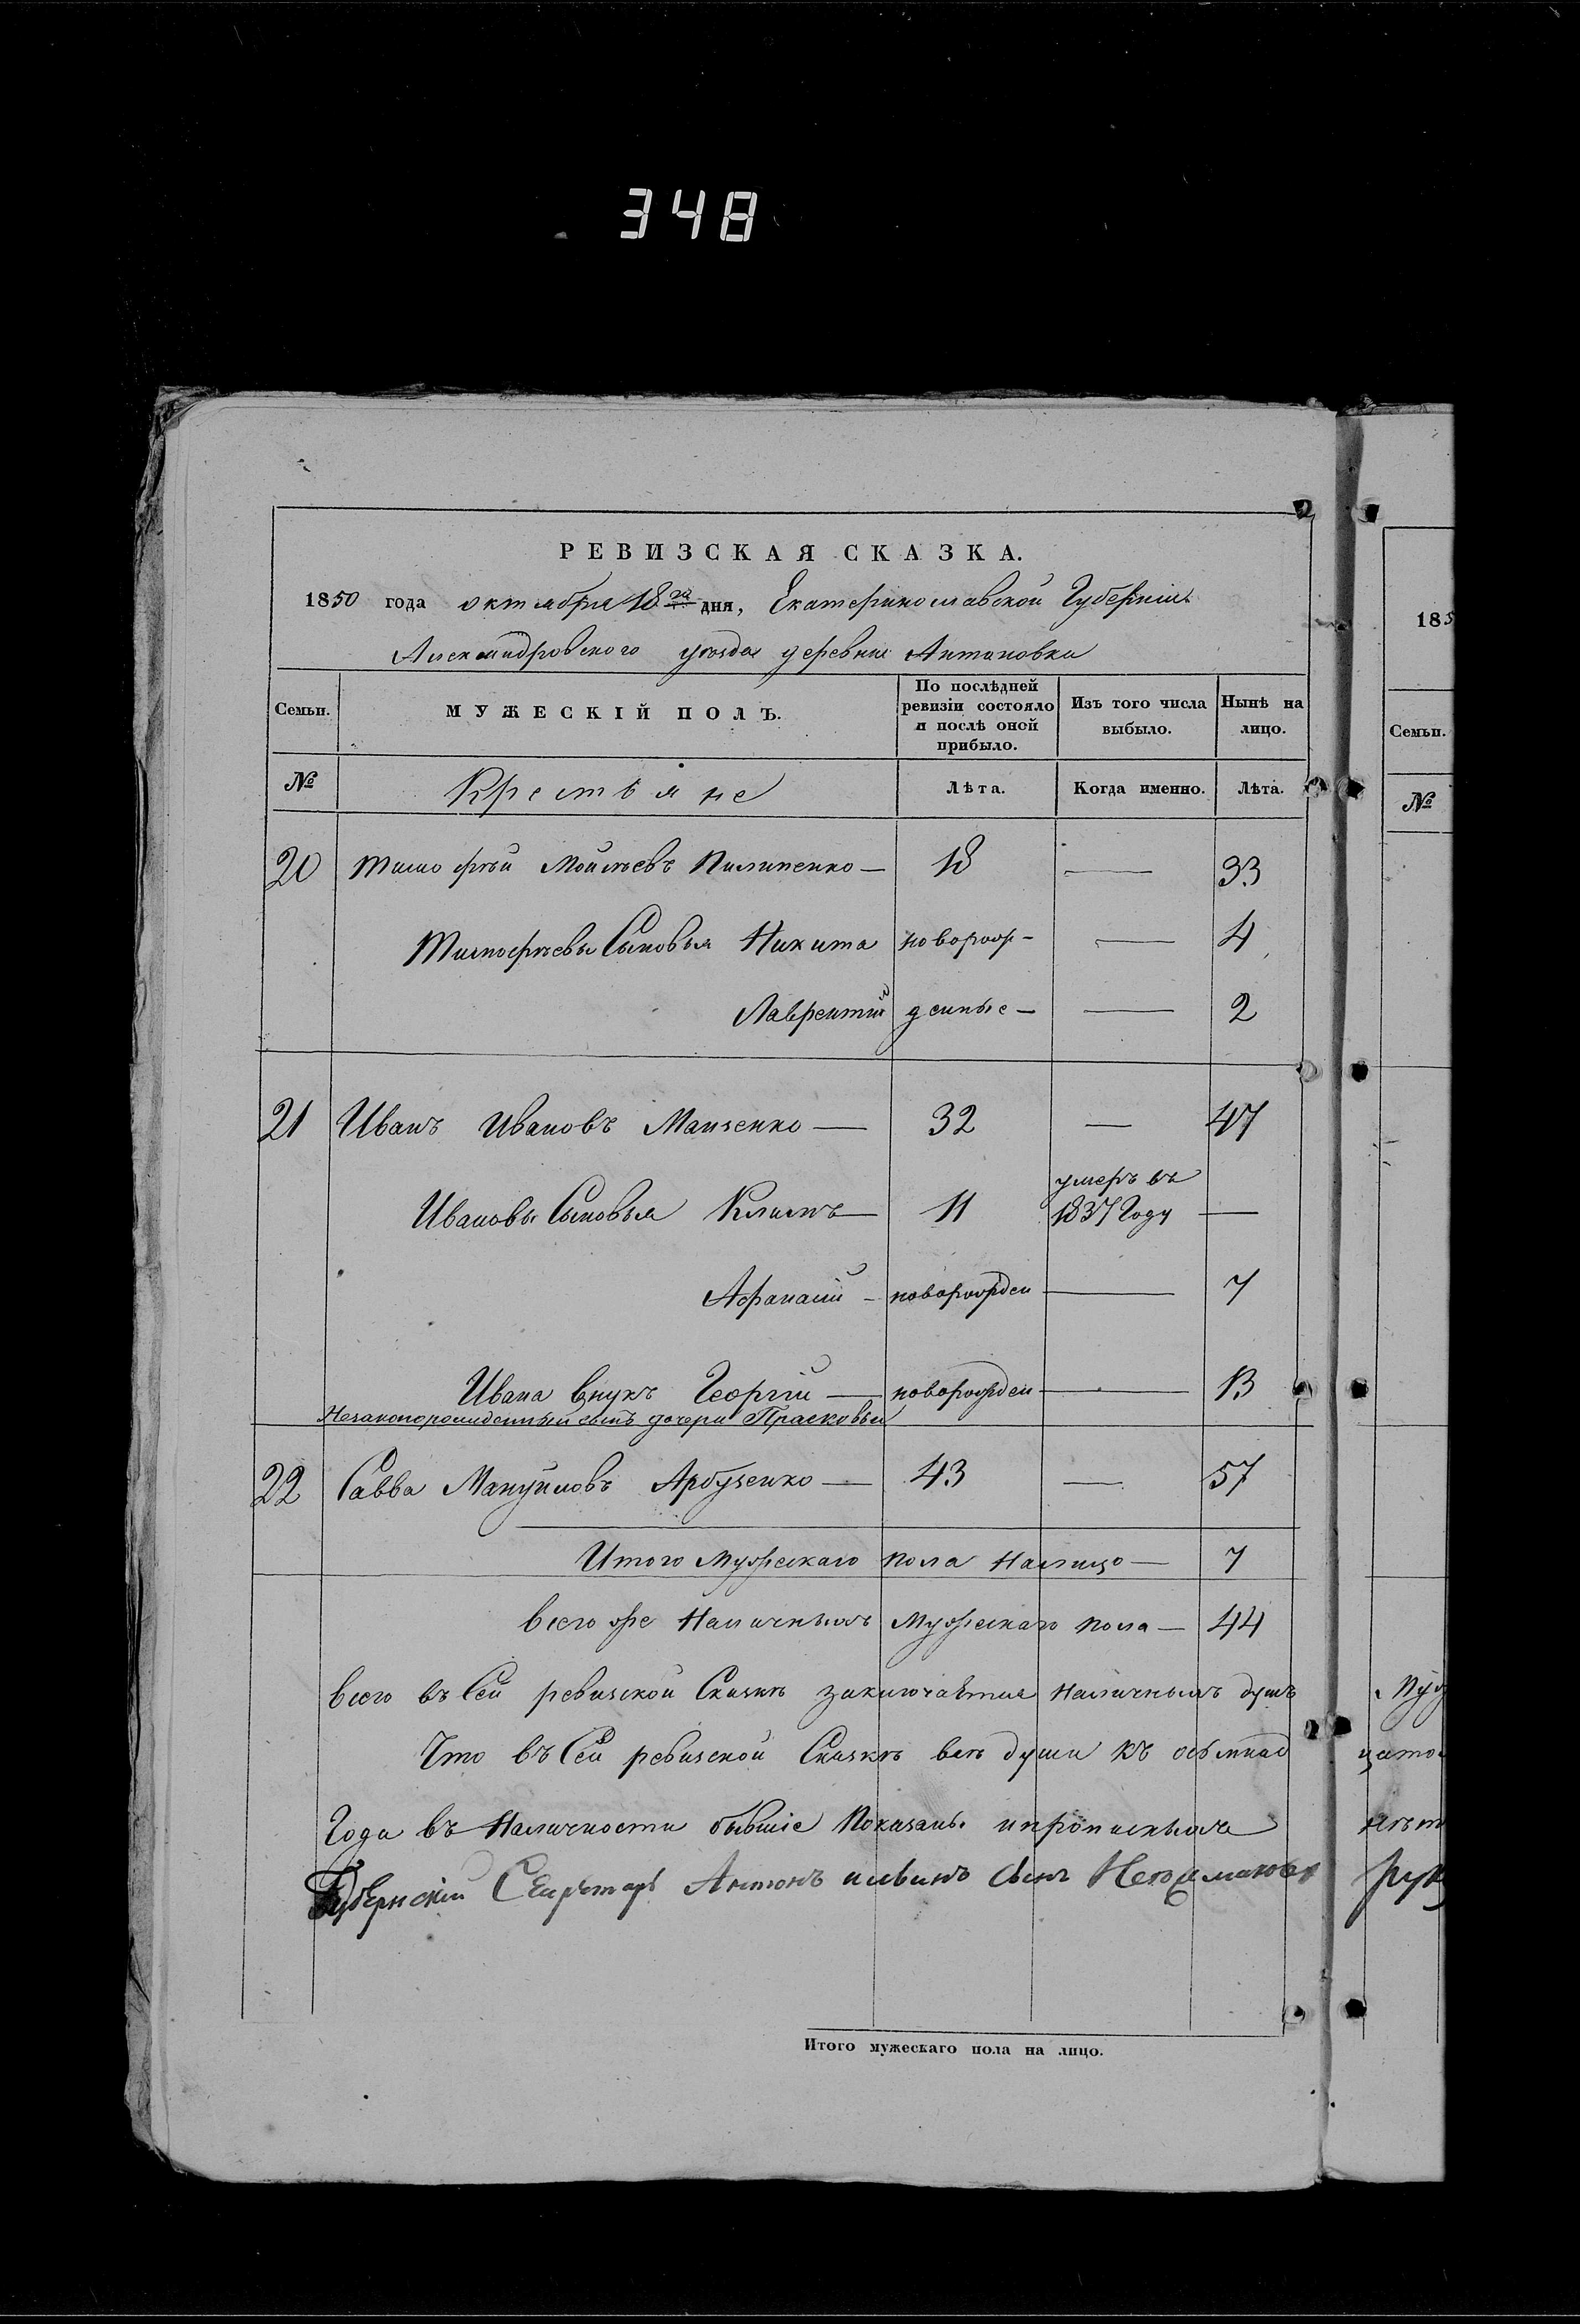 348
РЕВИЗСКАЯ СКАЗКА.
1850 года октября 18го дня, Екатеринославской Губерніи
Александровского уѣзда деревни Антоновки
Семьи. МУЖЕСКІЙ ПОЛЪ. По послѣдней ревизіи состояло и послѣ оной прибыло. Изъ того числа выбыло. Нынѣ на лицо.
№ Крестьяне Лѣта. Когда именно. Лѣта.
20 Тимофѣй Моисѣевъ Пилипенко — 18 — 33
Тимофѣевы Сыновья Никита новорож- — 4
Лаврентій денные — — 2
21 Иванъ Ивановъ — 32 — 47
Ивановы Сыновья Климъ — 11 умеръ въ 1837 Году —
Афанасій — новорожден — 7
Ивана внукъ Георгій — новорожден — 13
Незаконорожденный сынъ дочери Прасковьи
22 Савва Мануиловъ Арбузенко — 43 — 57
Итого мужескаго пола налицо — 7
всего же Наличныхъ Мужескаго пола — 44
всего въ Сей ревизской Сказкѣ заключается Наличныхъ душъ
Что въ Сей ревизской Сказкѣ всѣ души къ осьмнад
Года въ Наличности бывшіе Показаны и
Губернскій Секретарь Антонъ сынъ
Итого мужескаго пола на лицо.
185
Семьи.
№